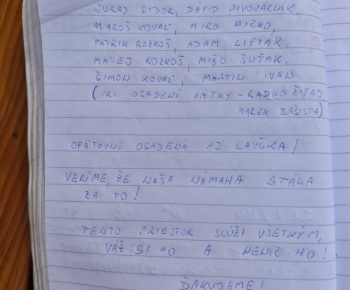 JURAJ ŠIDOR, DÁVID DIVOVARNÍK,
MAROŠ KOVAĽ, MIRO MIČKO,
PATRIK ROZKOŠ, ADAM LIPTÁK,
MATEJ ROZKOŠ, MIŠO ŠUŤÁK,
ŠIMON KOVAĽ, MARTIN IVAN
(PRI OSADENÍ LÁTKY - RAZKO
MAREK BAŠISTA)
OPÄTOVNE OSADENÁ AJ LAVIČKA!
VERÍME, ŽE NAŠA NÁMAHA STÁLA
ZA TO!
TENTO PRIESTOR SLÚŽI VŠETKÝM,
VÁŽ SI HO A NENIČ HO!
ĎAKUJEME!